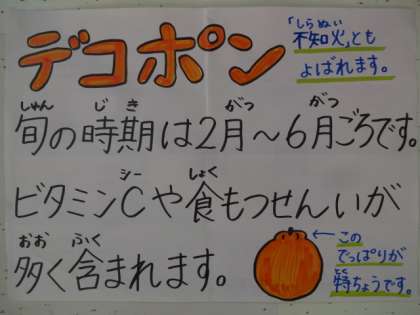 デコポン
「しらぬい
不知火」とも
よばれます。
しゅん じき がつ がつ
旬の時期は2月～6月ごろです。
シー しょく
ビタミンCや食もつせんいが
おお ふく
多く含まれます。
←この
でっぱりが
とく
特ちょうです。